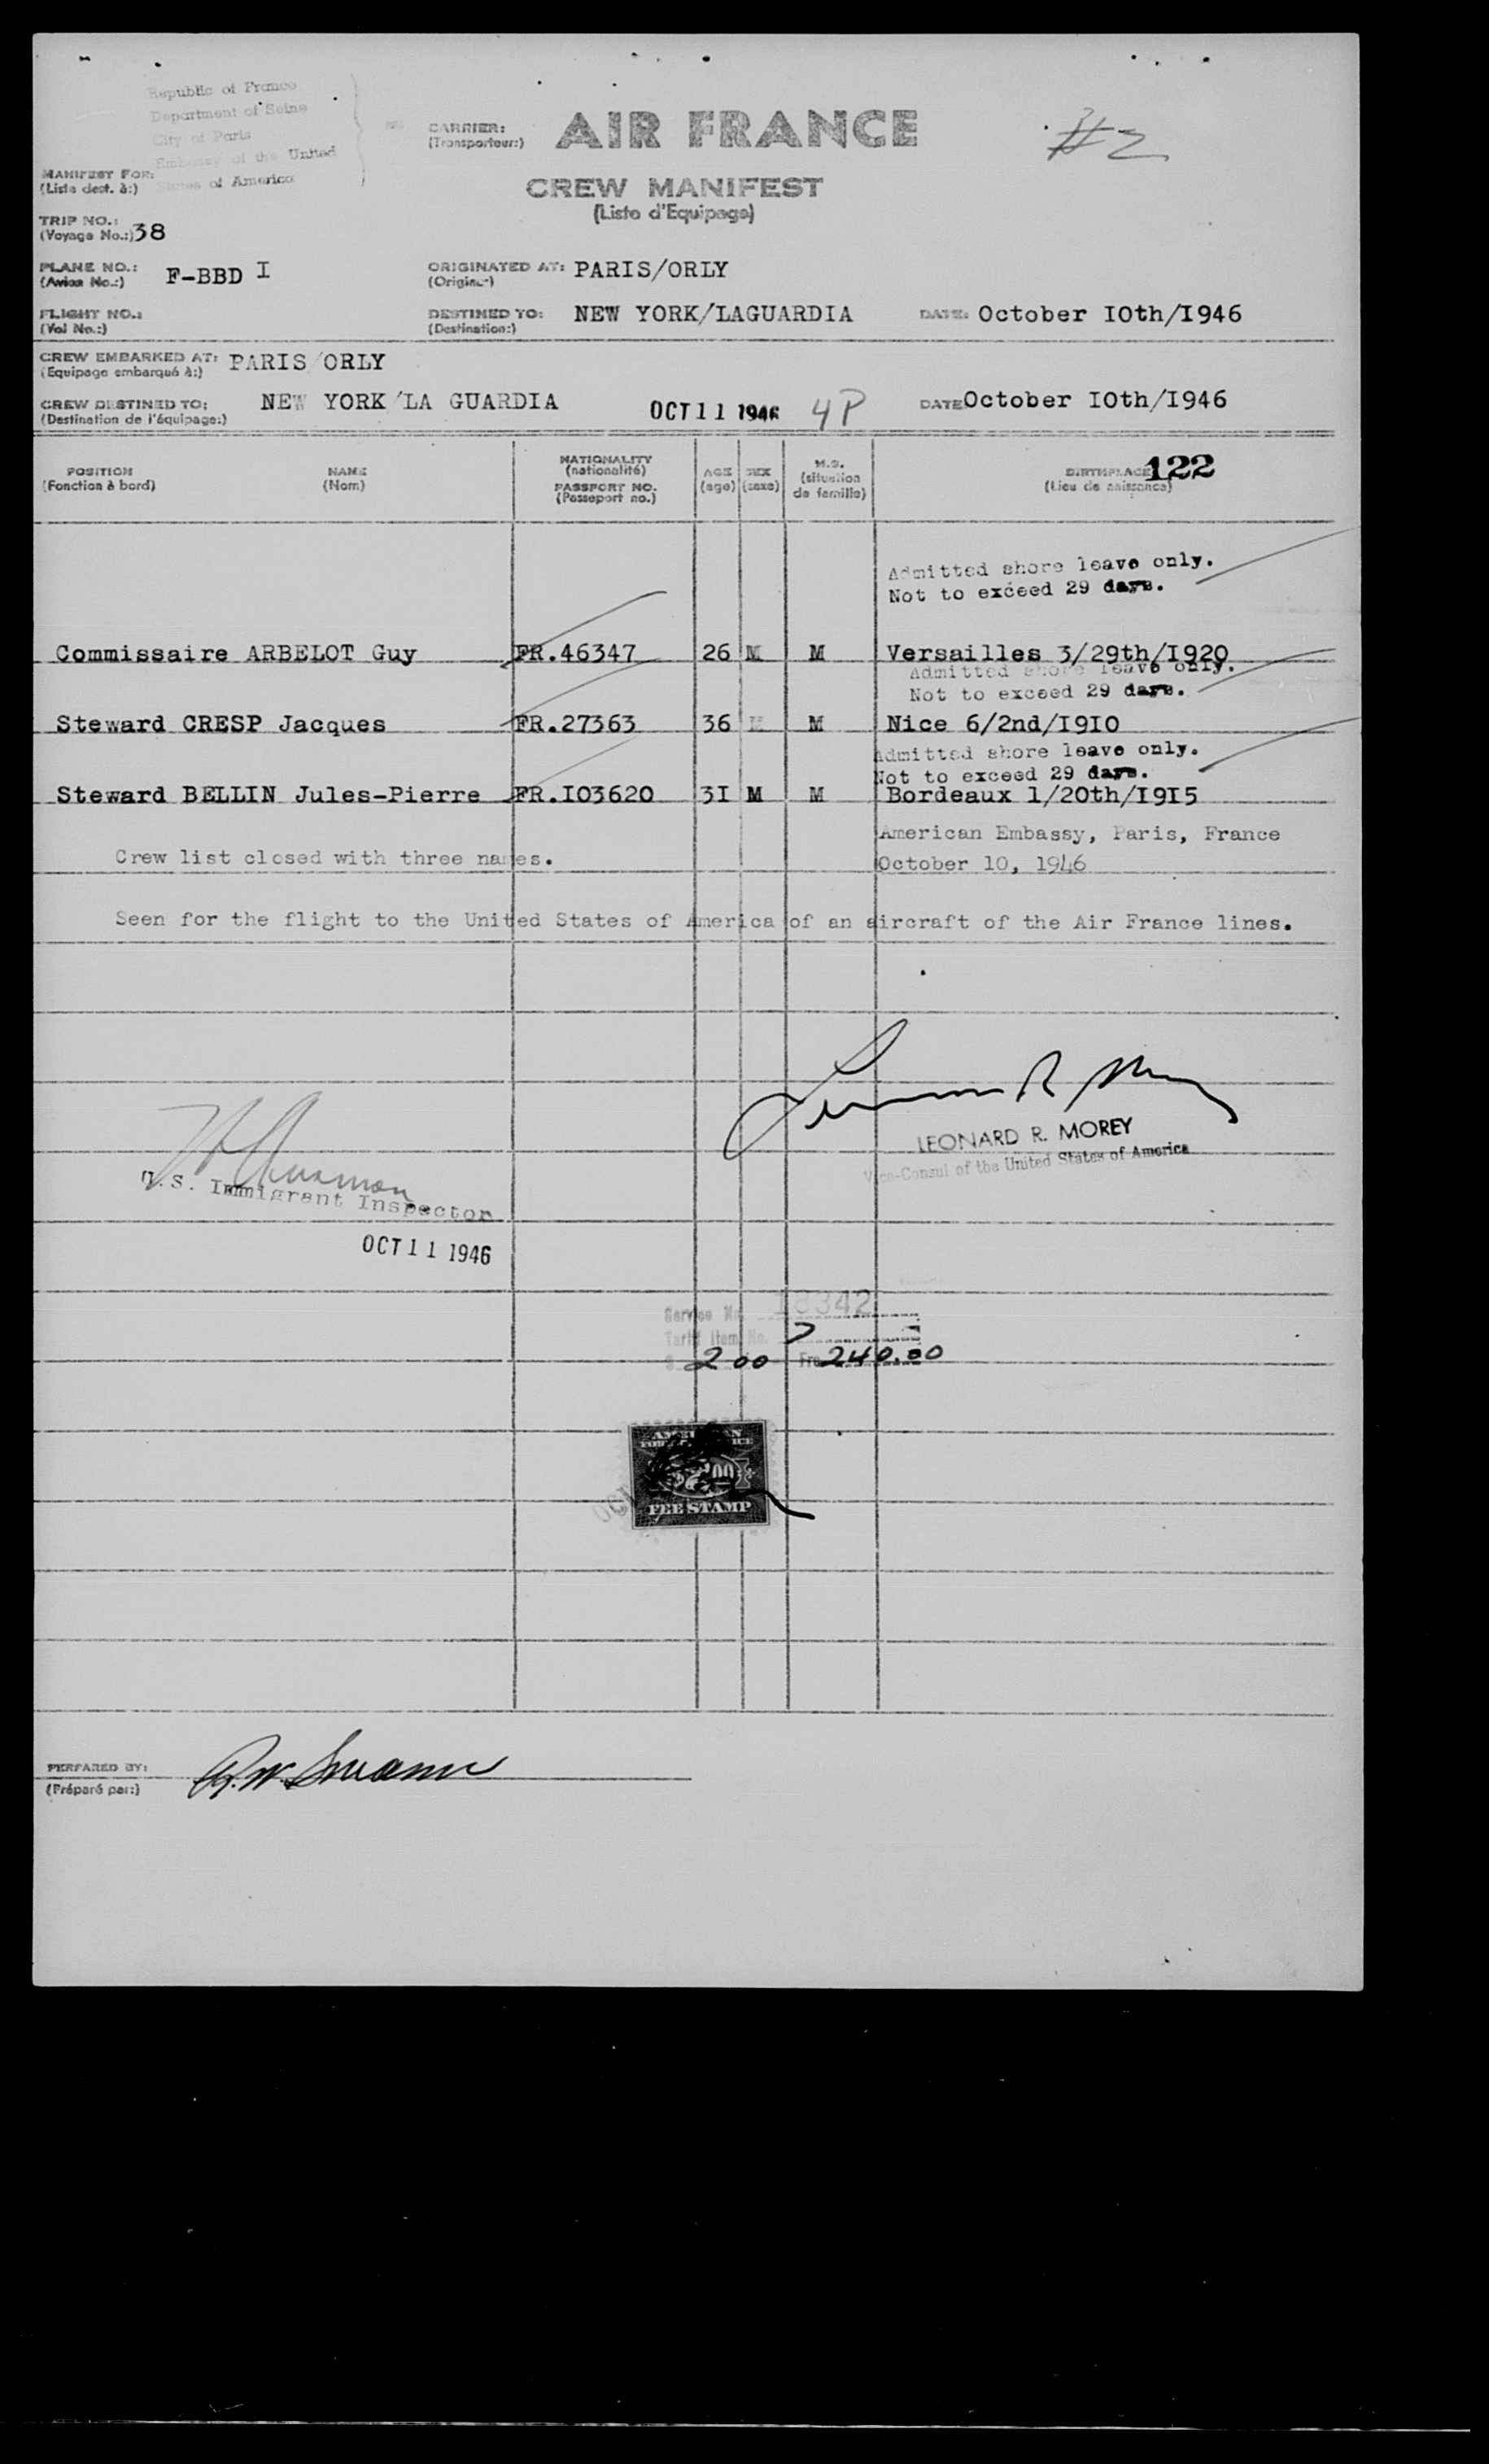 Republic of France
Department of Seine
City of Paris
Embassy of the United
States of America
CARRIER: AIR FRANCE
(Transporteur:)
#2
CREW MANIFEST
(Liste d'Equipage)
MANIFEST FOR:
(Liste dest. à:)
TRIP NO.:
(Voyage No.:) 38
PLANE NO.: F-BBD I
(Avion No.:)
ORIGINATED AT: PARIS/ORLY
(Origine:)
FLIGHT NO.:
(Vol No.:)
DESTINED TO: NEW YORK/LAGUARDIA
(Destination:)
DATE: October IOth/I946
CREW EMBARKED AT: PARIS/ORLY
(Equipage embarqué à:)
CREW DESTINED TO: NEW YORK/LA GUARDIA
(Destination de l'équipage:)
OCT 11 1946 4P
DATE October IOth/I946
POSITION
(Fonction à bord)
NAME
(Nom)
NATIONALITY
(nationalité)
PASSPORT NO.
(Passeport no.)
AGE
(age)
SEX
(sexe)
M.S.
(situation
de famille)
BIRTHPLACE 122
(Lieu de naissance)
Admitted shore leave only.
Not to exceed 29 days.
Commissaire ARBELOT Guy FR.46347 26 M M Versailles 3/29th/I920
Admitted shore leave only.
Not to exceed 29 days.
Steward CRESP Jacques FR.27363 36 M M Nice 6/2nd/I9IO
Admitted shore leave only.
Not to exceed 29 days.
Steward BELLIN Jules-Pierre FR.IO3620 3I M M Bordeaux 1/20th/I9I5
American Embassy, Paris, France
Crew list closed with three names. October 10, 1946
Seen for the flight to the United States of America of an aircraft of the Air France lines.
LEONARD R. MOREY
Vice-Consul of the United States of America
U.S. Immigrant Inspector
OCT 11 1946
Service No. 18342
Tariff Item No. 7
$ 2 00 Frs 240.00
AMERICAN
FOREIGN SERVICE
$2.00
FEE STAMP
OCT
PERPARED BY:
(Préparé par:)